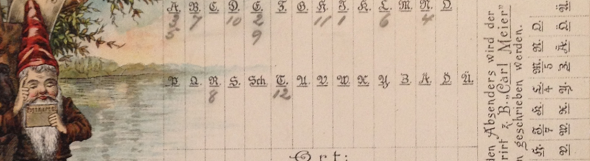 A. B. C. D. E. F. G. H. I. K. L. M. N. O.
3 7 10 2 11 1 6 4
5 9
P. Q. R. S. Sch T. U. V. W. X. Y. Z. Ä. Ö. Ü.
8 12
Ort:
Absenders wird der
z. B. „Carl Meier“
geschrieben worden.